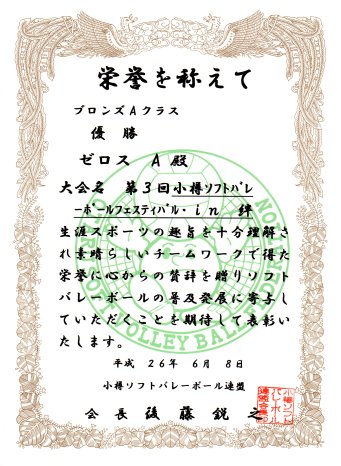 栄誉を称えて
ブロンズAクラス
優勝
ゼロス A 殿
大会名 第3回小樽ソフトバレ
ーボールフェスティバル・in 絆
生涯スポーツの趣旨を十分理解さ
れ素晴らしいチームワークで得た
栄誉に心からの賛辞を贈りソフト
バレーボールの普及発展に寄与し
ていただくことを期待して表彰い
たします。
平成 26年 6月 8日
小樽ソフトバレーボール連盟
会長 後藤鋭之